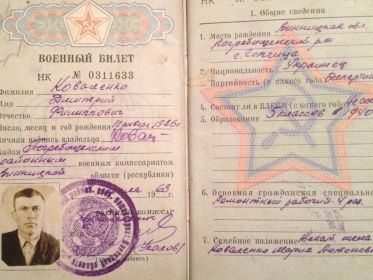 ВОЕННЫЙ БИЛЕТ
НК № 0311633
Фамилия Коваленко
Имя Дмитрий
Отчество Филиппович
Число, месяц и год рождения 10 января 1926 г.
Личная подпись владельца
Выдан Погребищенским
районным военным комиссариатом
Винницкой области (республики)
1963
I. Общие сведения
1. Место рождения Винницкая обл.
Погребищенский р-н
с.
2. Национальность Украинец
3. Партийность (с какого года)
4. Состоит ли в ВЛКСМ (с какого года)
5. Образование 5 классов в 1940
6. Основная гражданская специальность
Ремонтный рабочий 4 раз.
7. Семейное положение Женат, жена
Коваленко Мария Антоновна